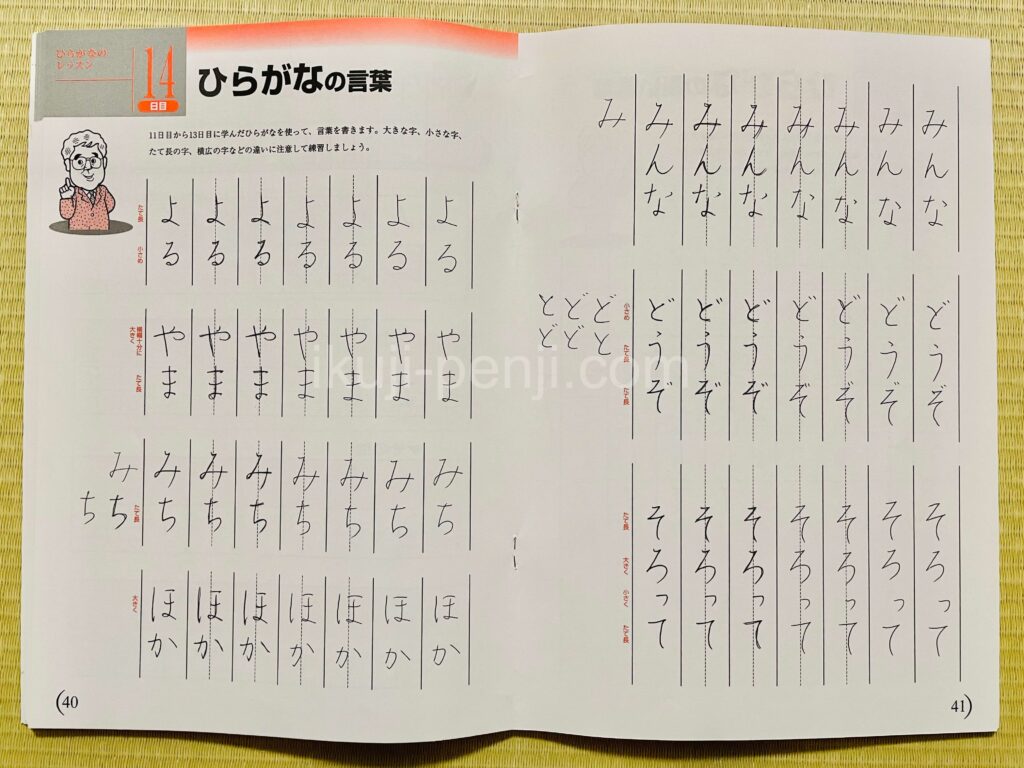 ひらがなの
レッスン
14
日目
ひらがなの言葉
11日目から13日目に学んだひらがなを使って、言葉を書きます。大きな字、小さな字、
たて長の字、横広の字などの違いに注意して練習しましょう。
たて長
小さめ
よる
よる
よる
よる
よる
よる
よる
横幅十分に
大きく
たて長
やま
やま
やま
やま
やま
やま
やま
ち
みち
たて長
みち
みち
みち
みち
みち
みち
みち
大きく
ほか
ほか
ほか
ほか
ほか
ほか
ほか
(40
み
みんな
みんな
みんな
みんな
みんな
みんな
みんな
とど
どど
どと
小さめ
たて長
たて長
どうぞ
どうぞ
どうぞ
どうぞ
どうぞ
どうぞ
どうぞ
たて長
大きく
小さく
たて長
そろって
そろって
そろって
そろって
そろって
そろって
そろって
41)
ikuji-penji.com